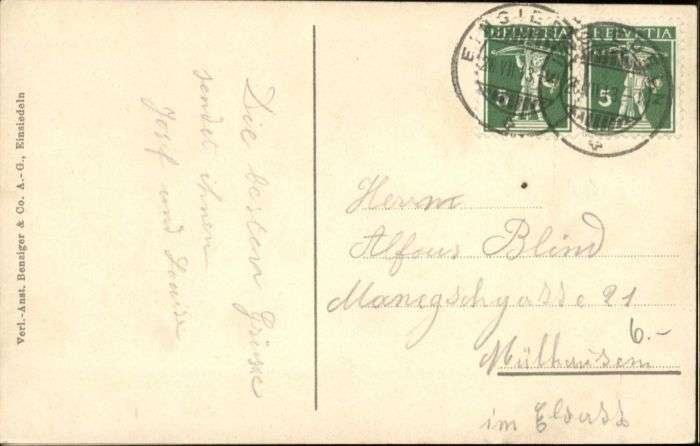 Verl.-Anst. Benziger & Co. A.-G., Einsiedeln
Die besten Grüsse
sendet ihnen
Josef und Louise
HELVETIA
5
HELVETIA
5
Herrn
Alfons Blind
Manegschgasse 21
6.-
Mülhausen
im Elsass